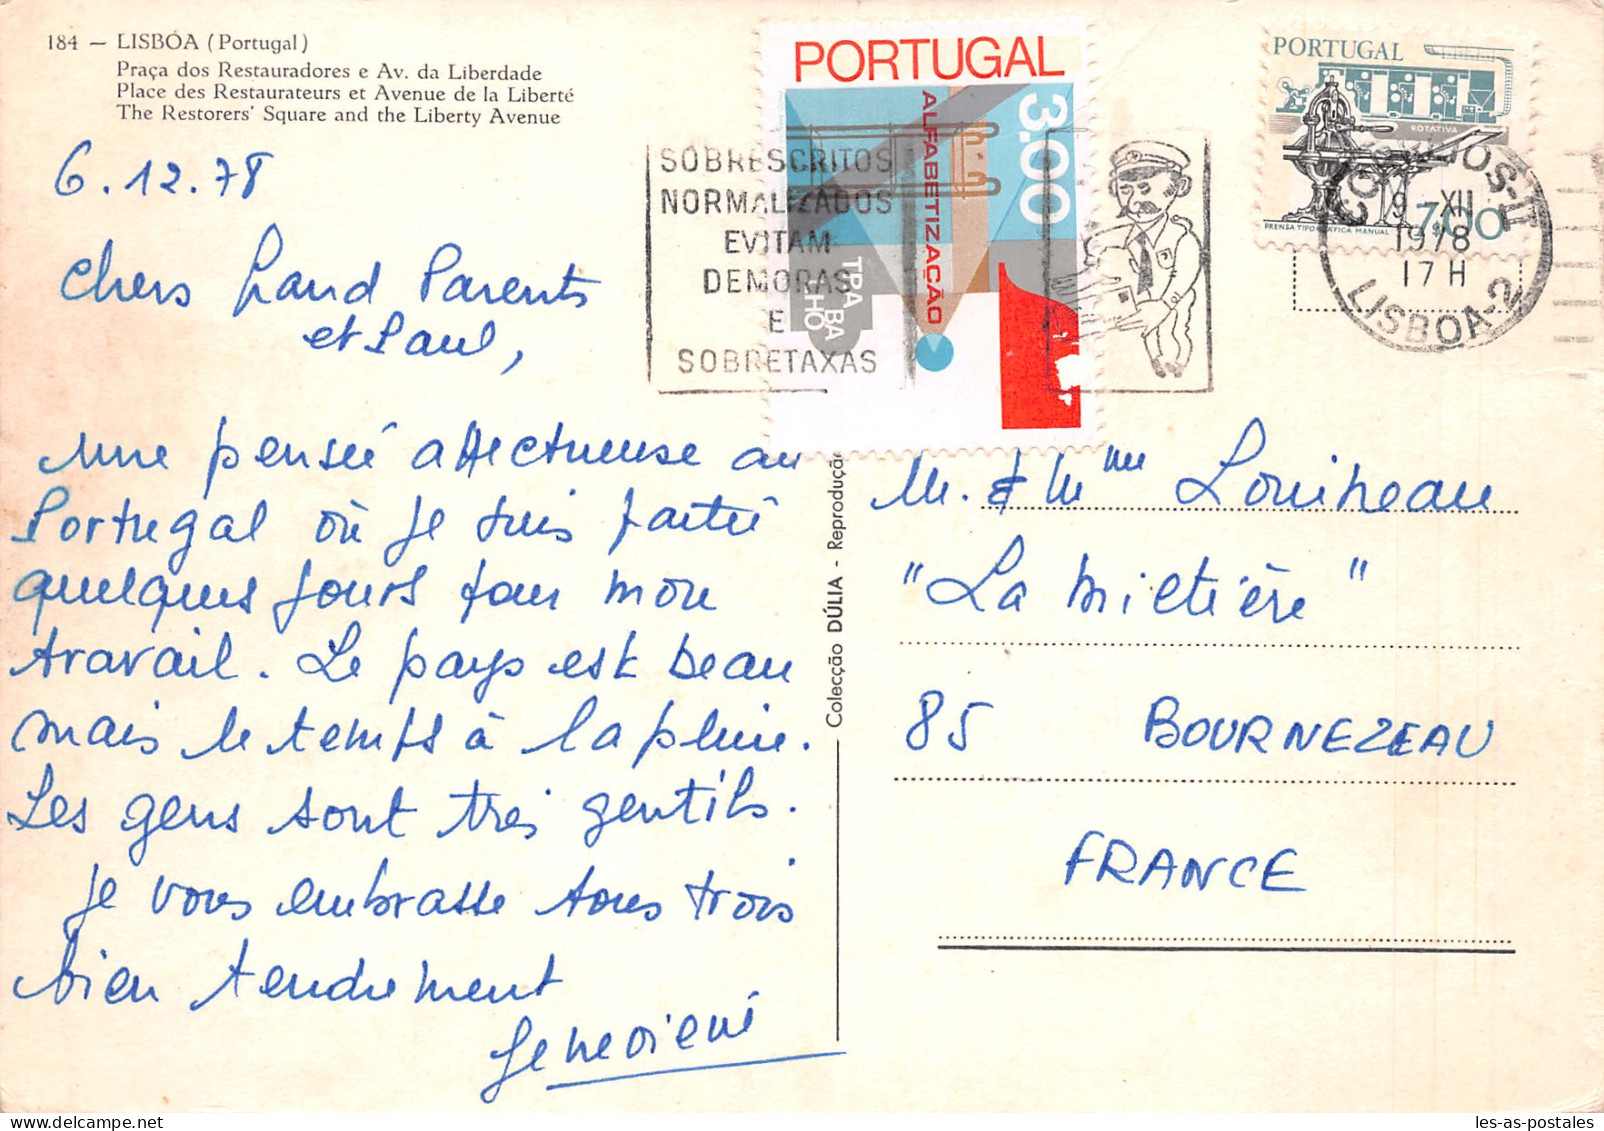 184 — LISBÔA (Portugal)
Praça dos Restauradores e Av. da Liberdade
Place des Restaurateurs et Avenue de la Liberté
The Restorers' Square and the Liberty Avenue
6.12.78
Chers Grand Parents
et Paul,
Une pensée affectueuse au
Portugal où je suis partie
quelques jours pour mon
travail. Le pays est beau
mais le temps à la pluie.
Les gens sont très gentils.
Je vous embrasse tous trois
bien tendrement
Geneviève
Colecção DÚLIA - Reprodução
PORTUGAL
3.00
ALFABETIZAÇÃO
TRA
BA
LHO
SOBRESCRITOS
NORMALIZADOS
EVITAM
DEMORAS
E
SOBRETAXAS
PORTUGAL
ROTATIVA
7$00
PRENSA TIPOGRÁFICA MANUAL
9 XII
1978
17 H
LISBOA-2
M. & Mme Louineau
"La Miltière"
85 BOURNEZEAU
FRANCE
les-as-postales
www.delcampe.net